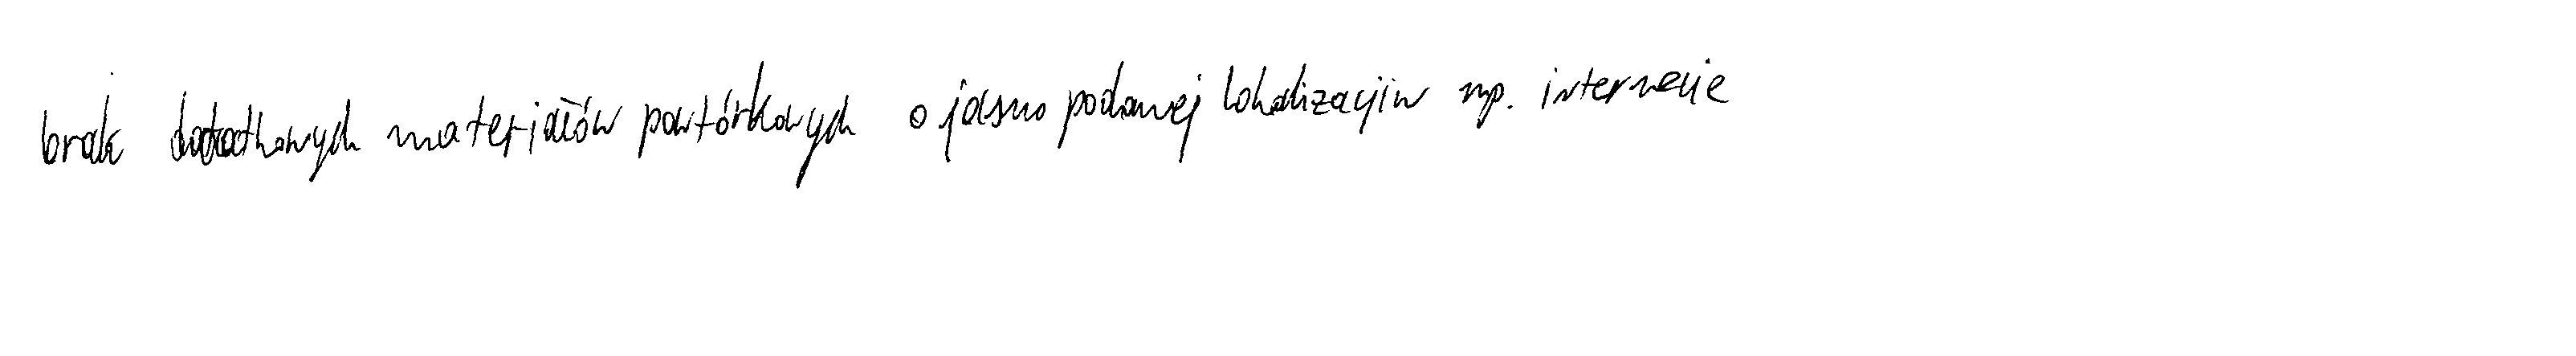 brak dodatkowych materiałów powtórkowych o jasno podanej lokalizacji w np. internecie